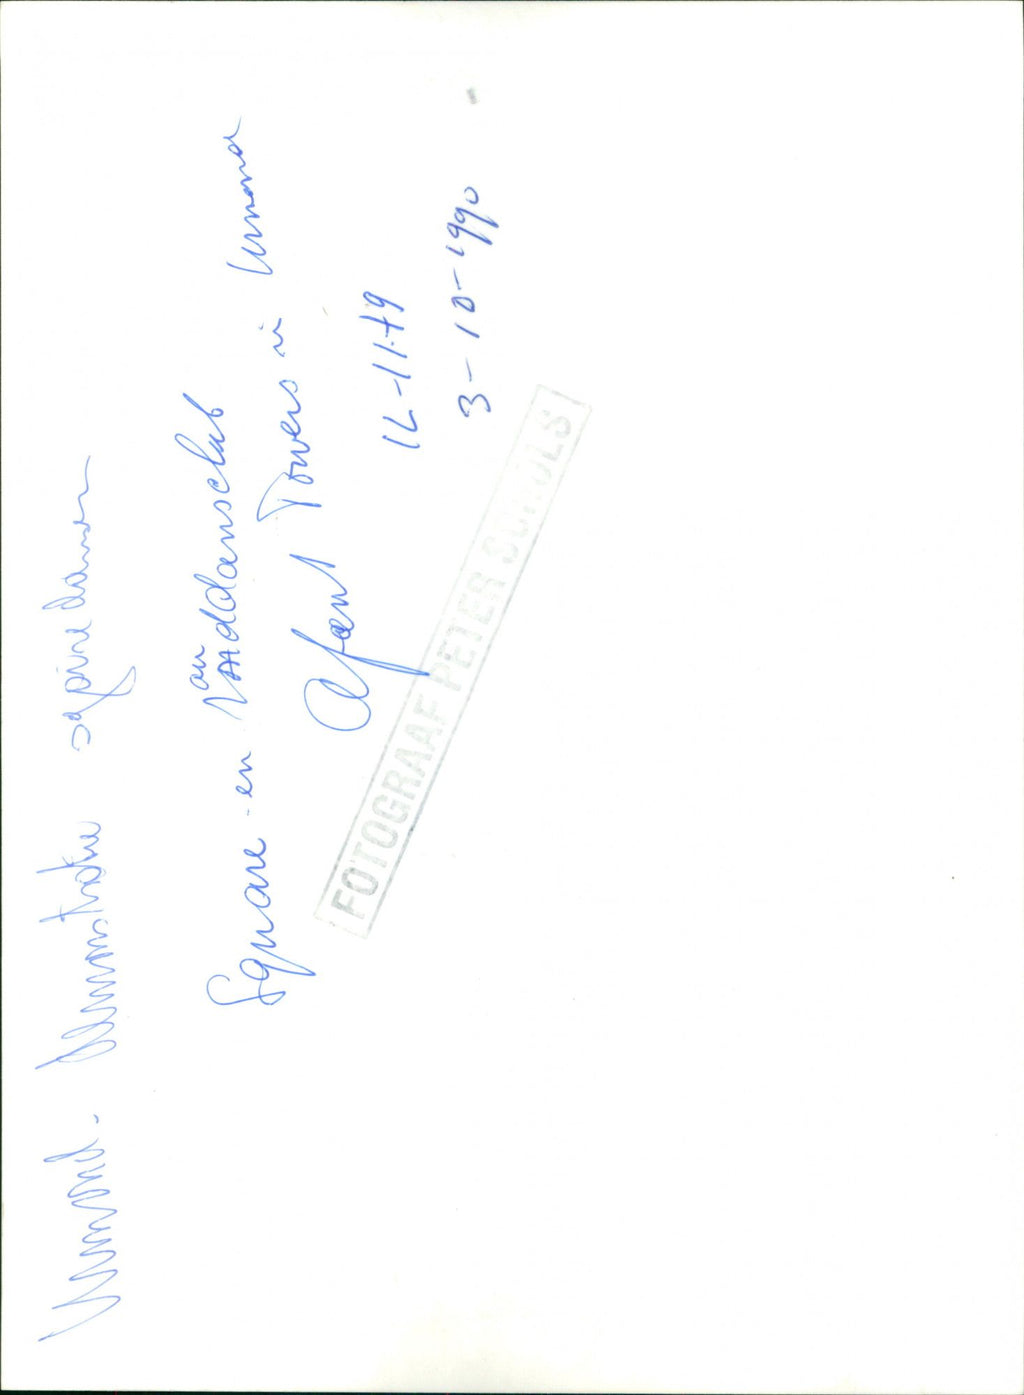 IJmond. Demonstratie square dansen
Square - en
an
Randdansclub
Afant Towers in IJmond
12-11-79
3-10-1990
FOTOGRAAF PETER SCHOLS